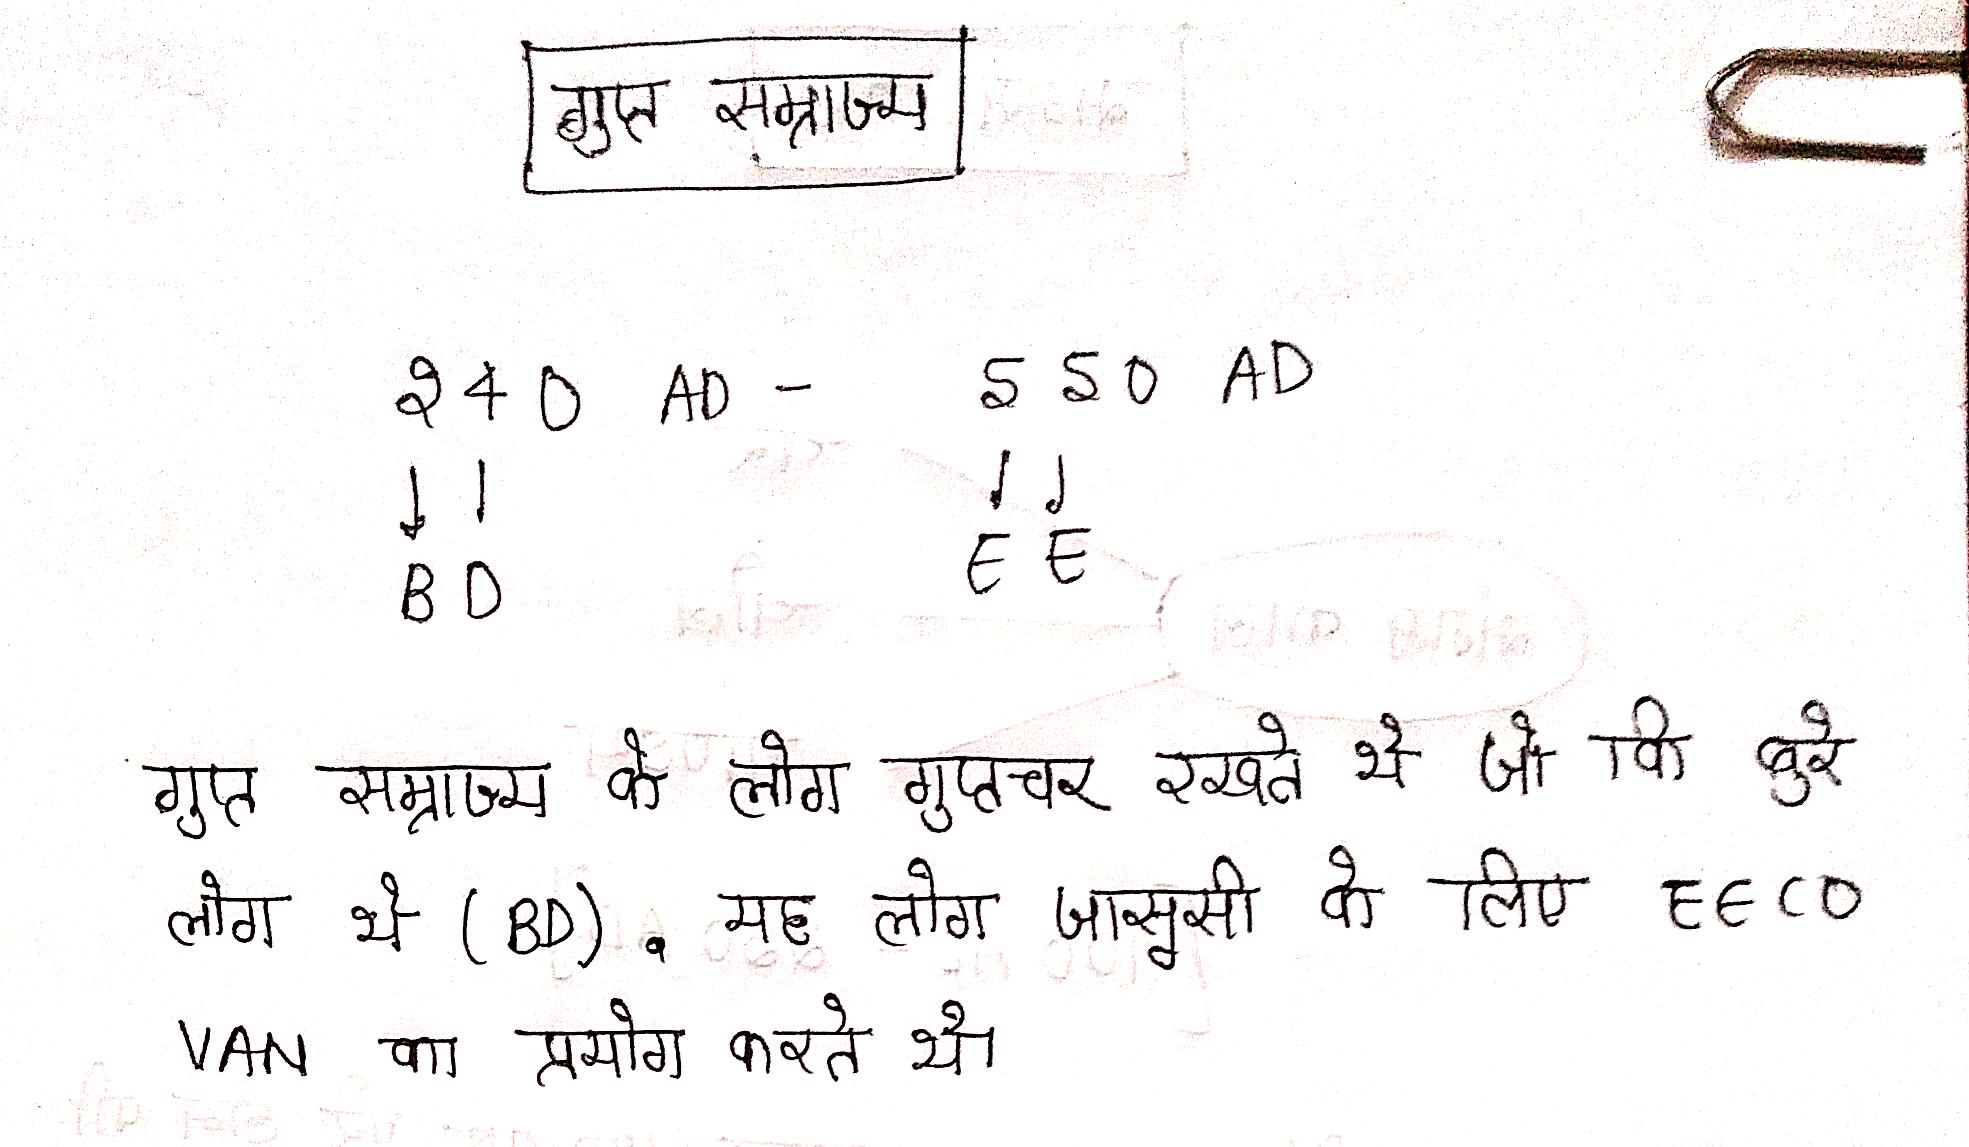 गुप्त सम्राज्य
240 AD - 550 AD
↓ ↓ ↓ ↓
B D E E
गुप्त सम्राज्य के लोग गुप्तचर रखते थे जो कि बुरे
लोग थे (BD). यह लोग जासूसी के लिए EECO
VAN का प्रयोग करते थे।